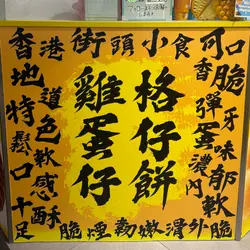 香港街頭小食可口
香脆
彈牙
蛋味
濃郁
內軟
地道
特色
鬆軟
口感
十足
酥脆煙韌嫩滑外脆
雞蛋仔
格仔餅